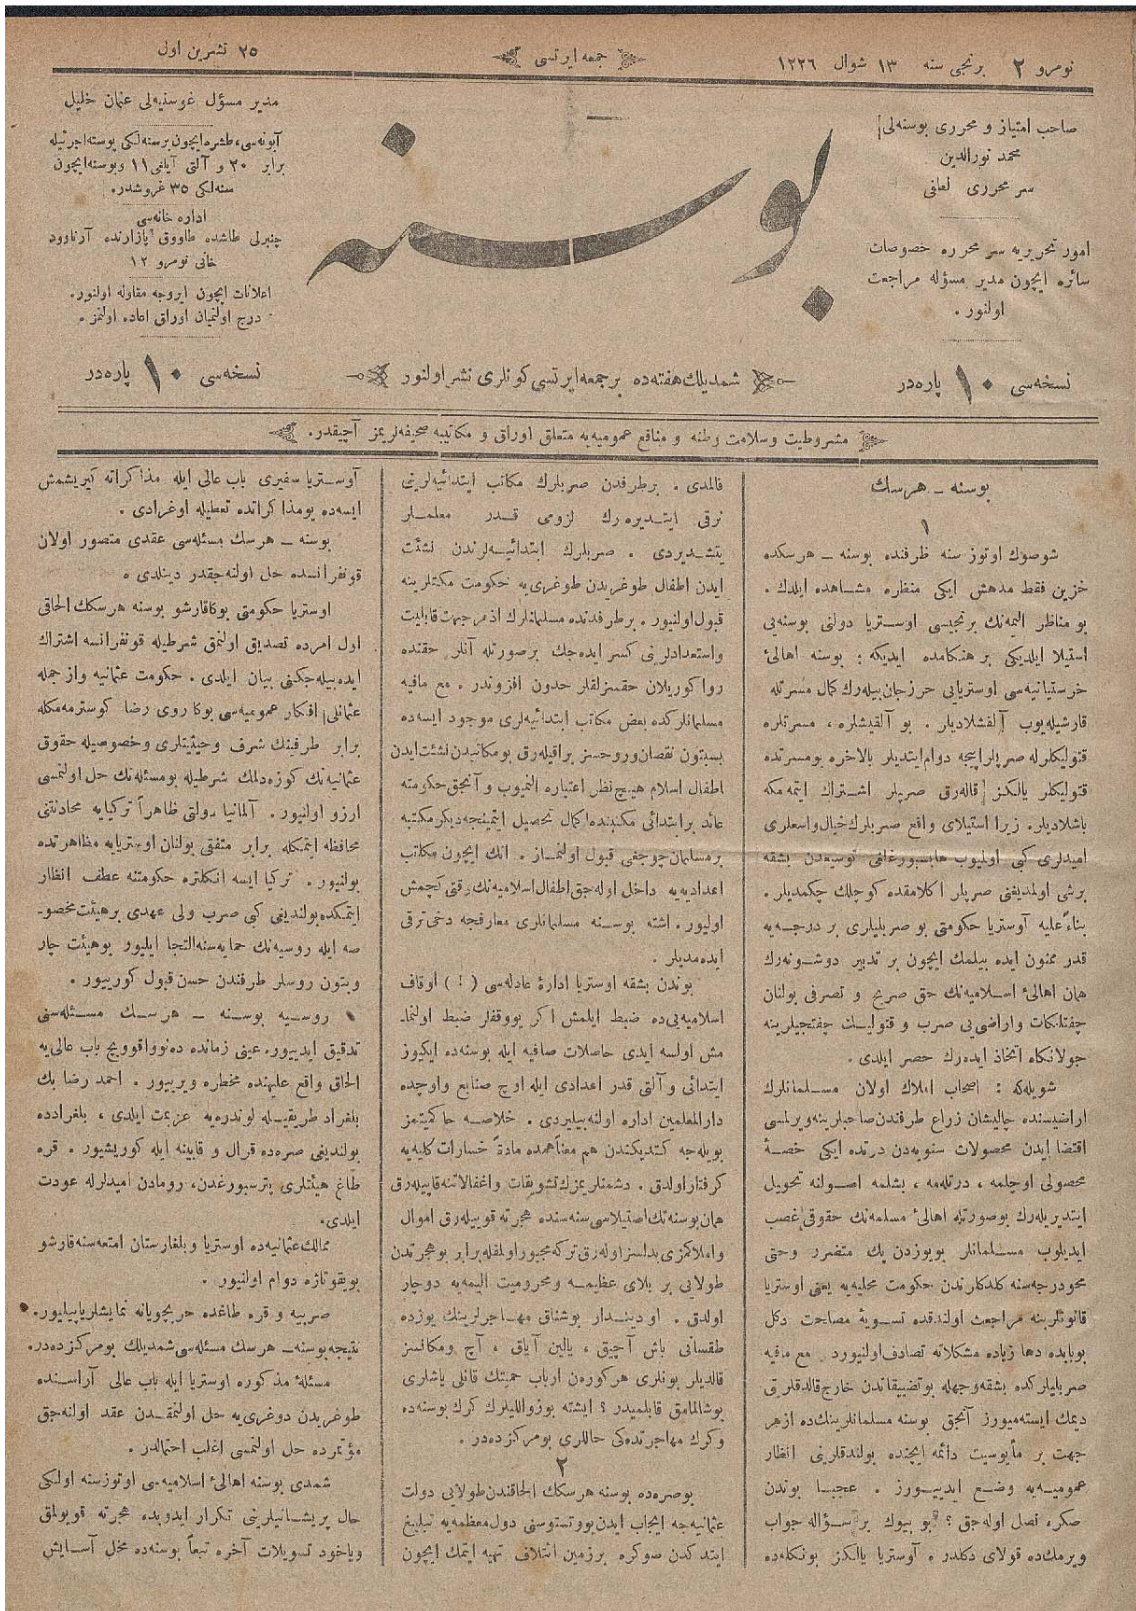 نومرو ۲ برنجی سنه ۱۳ شوال ۱۲۲٦
جمعه ایرتسی
۲۵ تشرین اول
صاحب امتیاز و محرری بوسنه‌لی
محمد نورالدین
سر محرری لعافی
امور تحریریه سر محرره خصوصات
سائره ایچون مدیر مسؤله مراجعت
اولنور .
بوسنه
مدیر مسؤل غوسنیه‌لی عثمان خلیل
آبونه‌سی، طشره ایچون برسنه‌لکی پوسته اجرتیله
برابر ۳۰ و آلتی آیلغی ۱۱ وبوسنه ایچون
سنه‌لکی ۳۵ غروشدر.
اداره خانه‌سی
چنبرلی طاشده طاووق بازارنده آرناوود
خانی نومرو ۱۲
اعلانات ایچون ایروجه مقاوله اولنور.
درج اولنمیان اوراق اعاده اولنمز.
نسخه‌سی ۱۰ پاره‌در
شمدیلك هفته‌ده بر جمعه ایرتسی کونلری نشر اولنور
نسخه‌سی ۱۰ پاره‌در
مشروطیت وسلامت وطنه و منافع عمومیه‌یه متعلق اوراق و مکاتیبه صحیفه‌لریمز آچیقدر.
بوسنه ـ هرسك
۱
شوصوك اوتوز سنه ظرفنده بوسنه ـ هرسکده
حزین فقط مدهش ایکی منظره مشاهده ایلدك .
بو مناظر الیمه‌نك برنجیسی اوستریا دولتی بوسنه‌یی
استیلا ایلدیکی بر هنکامده ایدیکه : بوسنه اهالئ
خرستیانیه‌سی اوستریایی حرزجان بیله‌رك کمال مسرتله
قارشیله‌یوب آلقشلادیلر . بو آلقیشلره ، مسرتلره
قتولیکلرله صربلر اپیجه دوام ایتدیلر بالاخره بومسرتده
قتولیکلر یالکز قاله‌رق صربلر اشتراك ایتمه‌مکه
باشلادیلر. زیرا استیلای واقع صربلرك خیال واسعلری
امیدلری کبی اولمیوب هابسبورغلغی توسیعدن بشقه
برشی اولمدیغنی صربلر اکلامقده کوجلك چکمدیلر .
بناءً علیه آوستریا حکومتی بو صربلیلری بر درجه‌یه
قدر ممنون ایده بیلمك ایچون بر تدبیر دوشونه‌رك
همان اهالئ اسلامیه‌نك حق صریح و تصرفی بولنان
چفتلکات واراضی‌یی صرب و قتولیك چفتجیلرینه
جولانکاه اتخاذ ایده‌رك حصر ایلدی .
شویله‌که : اصحاب املاك اولان مسلمانلرك
اراضیسنده چالیشان زراع طرفندن صاحبلرینه ویرلمسی
اقتضا ایدن محصولات سنویه‌دن درتده ایکی حصهٔ
محصولی اوچلمه ، درتله‌مه ، بشلمه اصولنه تحویل
ایتدیریله‌رك بوصورتله اهالئ مسلمه‌نك حقوقی غصب
ایدیلوب مسلمانلر بویوزدن پك متضرر وحتی
محودرجه‌سنه کلدکلرندن حکومت محلیه‌یه یعنی اوستریا
قانونلرینه مراجعت اولندقده تسویهٔ مصالحت دکل
بوبابده دها زیاده مشکلاته تصادف اولنیورد مع مافیه
صربلیلرکده بشقه وجهله بوتضییقاتدن خارج قالدقلرینی
دیمك ایسته‌میورز آنجق بوسنه مسلمانلرینك‌ده ازهر
جهت بر مأیوسیت دائمه ایچنده بولندقلرینی انظار
عمومیه‌یه وضع ایدییورز . عجبا بوندن
صکره نصل اوله‌جق ؟ بو بیوك بر سؤاله جواب
ویرمك‌ده قولای دکلدر . آوستریا یالکز بونکله‌ده
قالمدی . برطرفدن صربلرك مکاتب ابتدائیه‌لرینی
ترقی ایتدیره‌رك لزومی قدر معلملر
یتشدیردی . صربلرك ابتدائیه‌لرندن نشئت
ایدن اطفال طوغریدن طوغری‌یه حکومت مکتبلرینه
قبول اولنیور . برطرفدنده مسلمانلرك ازهرجهت قابلیت
واستعدادلرینی کسر ایده‌جك برصورتله آنلر حقنده
روا کوریلان حقسزلقلر حدون افزوندر . مع مافیه
مسلمانلرکده بعض مکاتب ابتدائیه‌لری موجود ایسه‌ده
بسبتون نقصان وروحسز براقیله‌رق بومکاتبدن نشئت ایدن
اطفال اسلام هیچ نظر اعتباره النمیوب و آنجق حکومته
عائد برابتدائی مکتبنده اکمال تحصیل ایتمینجه دیکر مکتبه
برمسلمان چوجغی قبول اولنماز . انك ایچون مکاتب
اعدادیه‌یه داخل اوله‌جق اطفال اسلامیه‌نك وقتی کچمش
اولیور . اشته بوسنه مسلمانلری معارفجه دخی ترقی
ایده‌مدیلر .
بوندن بشقه اوستریا ادارهٔ عادله‌سی ( ! ) اوقاف
اسلامیه‌یی‌ده ضبط ایلمش اکر بووقفلر ضبط اولنما‌ـ
مش اولسه ایدی حاصلات صافیه ایله بوسنه‌ده ایکیوز
ابتدائی و آلتی قدر اعدادی ایله اوچ صنایع و اوچده
دارالمعلمین اداره اولنه بیلیردی . خلاصه حاکمیتمز
بویله‌جه کتدیکندن هم معناً همده مادةً خسارات کلیه‌یه
کرفتار اولدق . دشمنلریمزك تشویقات واغفالاتنه قاپیله‌رق
همان بوسنه‌نك استیلاسی سنه‌سنده هجرته قوییله‌رق اموال
واملاکمزی بدلسز اوله‌رق ترکه مجبور اولمقله برابر بوهجرتدن
طولایی بر بلای عظیمه ومحرومیت الیمه‌یه دوچار
اولدق . او دیندار بوشناق مهاجرلرینك یوزده
طقسانی باش آچیق ، یالین آیاق ، آچ ومکانسز
قالدیلر بونلری هرکورن ارباب حمیتك قانلی یاشلری
بوشالمامق قابلمیدر ؟ ایشته بوزواللیلرك کرك بوسنه‌ده
وکرك مهاجرتده‌کی حاللری بومرکزده‌در .
۲
بوصره‌ده بوسنه هرسکك الحاقندن طولایی دولت
عثمانیه‌جه ایجاب ایدن پروتستوسنی دول معظمه‌یه تبلیغ
ایتدکدن صوکره برزمین ائتلاف تهیه ایتمك ایچون
آوستریا سفیری باب عالی ایله مذاکراته کیریشمش
ایسه‌ده بومذاکراتده تعطیله اوغرادی .
بوسنه ـ هرسك مسئله‌سی عقدی متصور اولان
قونفرانسده حل اولنه‌جقدر دینلدی .
اوستریا حکومتی بوکا قارشو بوسنه هرسکك الحاقی
اول امرده تصدیق اولنمق شرطیله قونفرانسه اشتراك
ایده‌بیله‌جکنی بیان ایلدی . حکومت عثمانیه و ازجمله
عثمانلی افکار عمومیه‌سی بوکا روی رضا کوسترمه‌مکله
برابر طرفینك شرف وحیثیتلری وخصوصیله حقوق
عثمانیه‌نك کوزه‌دلمك شرطیله بومسئله‌نك حل اولنمسی
ارزو اولنیور . آلمانیا دولتی ظاهراً ترکیایه محادنتنی
محافظه ایتمکله برابر متفقی بولنان اوستریایه مظاهرتده
بولنیور . ترکیا ایسه انکلتره حکومتنه عطف انظار
ایتمکده بولندیغی کبی صرب ولی عهدی برهیئت مخصوـ
صه ایله روسیه‌نك حمایه‌سنه التجا ایلیور بوهیئت چار
وبتون روسلر طرفندن حسن قبول کورییور .
روسیه بوسنه ـ هرسك مسئله‌سنی
تدقیق ایدییور. عینی زمانده ده نوواقوویچ باب عالی‌یه
الحاق واقع علیهنده مخطره ویرییور . احمد رضا بك
بلغراد طریقیله لوندره‌یه عزیمت ایلدی ، بلغرادده
بولندیغی صره‌ده قرال و قابینه ایله کوریشیور . قره
طاغ هیئتلری پترسبورغدن، رومادن امیدلرله عودت
ایلدی.
ممالك عثمانیه‌ده اوستریا وبلغارستان امتعه‌سنه قارشو
بویقوتاژه دوام اولنیور .
صربیه و قره طاغده حربجویانه نمایشلر یاپیلیور.
نتیجه بوسنه ـ هرسك مسئله‌سی شمدیلك بومرکزده‌در.
مسئلهٔ مذکوره اوستریا ایله باب عالی آراسنده
طوغریدن دوغری‌یه حل اولنمقدن عقد اولنه‌جق
مؤتمرده حل اولنمسی اغلب احتمالدر .
شمدی بوسنه اهالئ اسلامیه‌سی اوتوزسنه اولکی
حال پریشانیلرینی تکرار ایدوبده هجرته قویولمق
ویاخود تسویلات آخره تبعاً بوسنه‌ده مخل آسایش